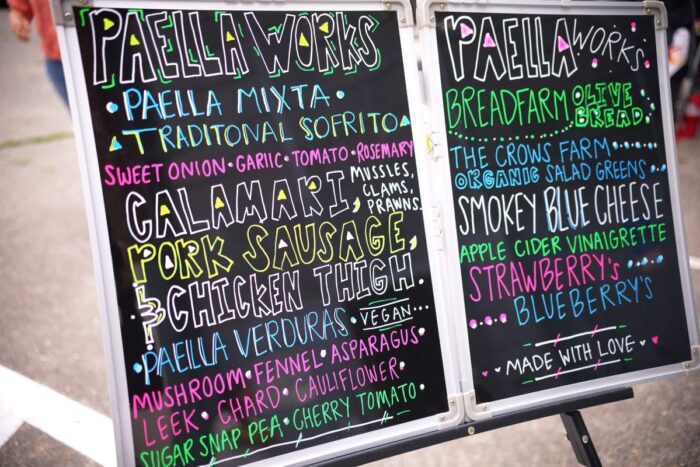 PAELLA WORKS
PAELLA MIXTA
TRADITONAL SOFRITO
SWEET ONION • GARLIC • TOMATO • ROSEMARY
CALAMARI MUSSLES,
CLAMS,
PRAWNS.
PORK SAUSAGE
& CHICKEN THIGH
• PAELLA VERDURAS • VEGAN...
MUSHROOM • FENNEL • ASPARAGUS •
LEEK • CHARD • CAULIFLOWER •
SUGAR SNAP PEA • CHERRY TOMATO •
PAELLA WORKS
BREADFARM OLIVE
BREAD
THE CROWS FARM
ORGANIC SALAD GREENS
SMOKEY BLUE CHEESE
APPLE CIDER VINAIGRETTE
STRAWBERRY'S
BLUEBERRY'S
MADE WITH LOVE